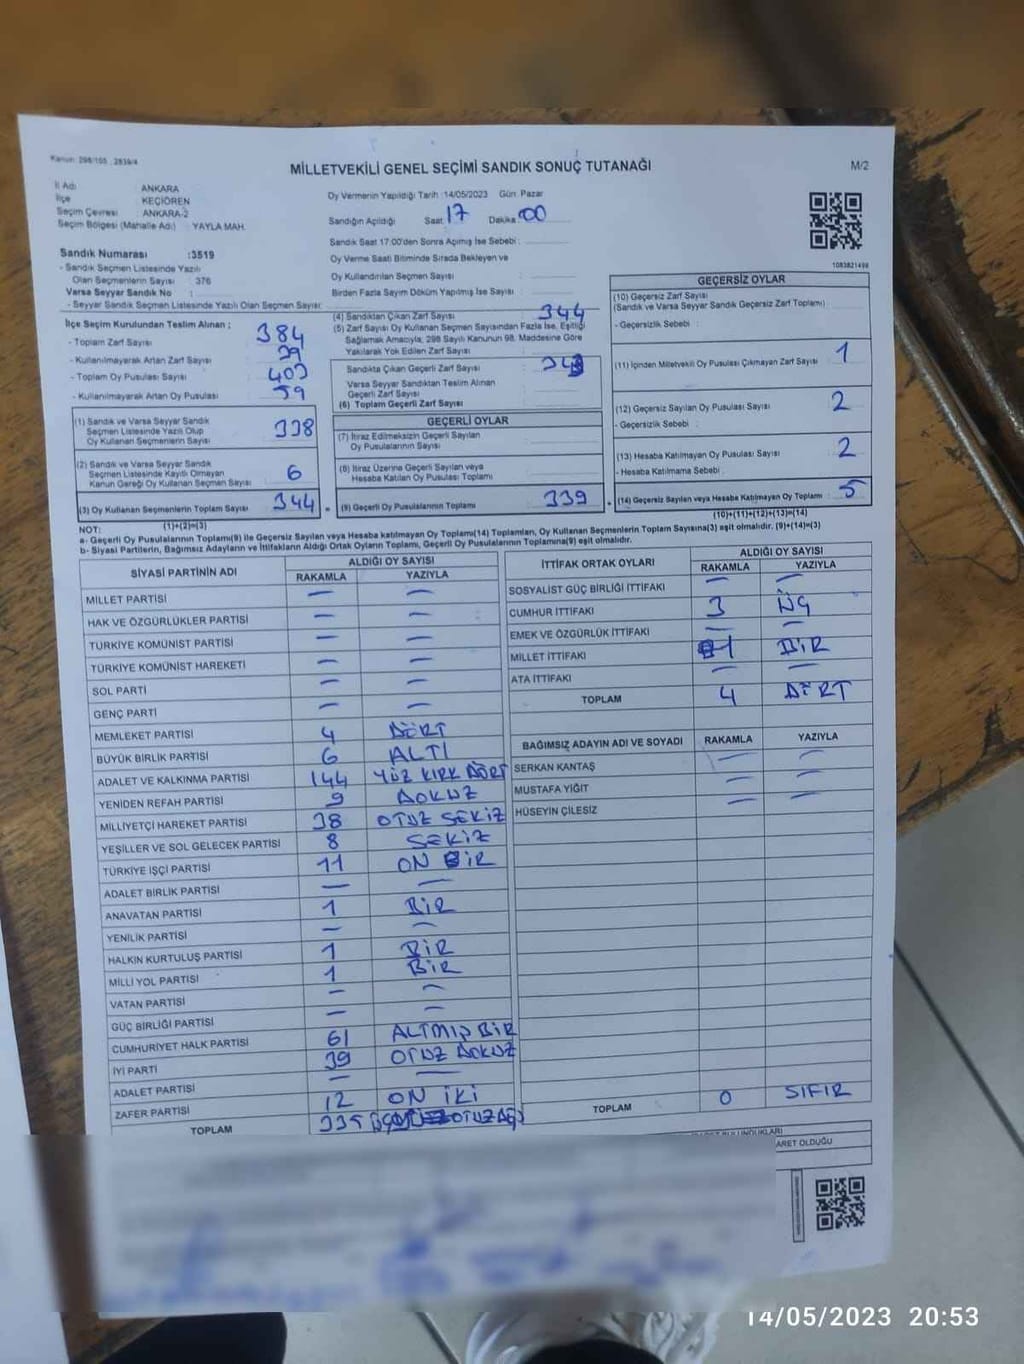 Kanun: 298/105 , 2839/4
MİLLETVEKİLİ GENEL SEÇİMİ SANDIK SONUÇ TUTANAĞI
M/2
İl Adı ANKARA
İlçe KEÇİÖREN
Seçim Çevresi ANKARA-2
Seçim Bölgesi (Mahalle Adı) : YAYLA MAH.
Oy Vermenin Yapıldığı Tarih :14/05/2023 Gün: Pazar
Sandığın Açıldığı Saat 17 Dakika 00
Sandık Saat 17:00'den Sonra Açmış İse Sebebi :
Oy Verme Saati Bitiminde Sırada Bekleyen ve
Oy Kullandırılan Seçmen Sayısı :
Birden Fazla Sayım Döküm Yapılmış İse Sayısı :
1083821498
Sandık Numarası :3519
- Sandık Seçmen Listesinde Yazılı
Olan Seçmenlerin Sayısı : 376
Varsa Seyyar Sandık No :
- Seyyar Sandık Seçmen Listesinde Yazılı Olan Seçmen Sayısı:
İlçe Seçim Kurulundan Teslim Alınan ;
- Toplam Zarf Sayısı 384
- Kullanılmayarak Artan Zarf Sayısı 39
- Toplam Oy Pusulası Sayısı 403
- Kullanılmayarak Artan Oy Pusulası 59
(1) Sandık ve Varsa Seyyar Sandık
Seçmen Listesinde Yazılı Olup
Oy Kullanan Seçmenlerin Sayısı 338
(2) Sandık ve Varsa Seyyar Sandık
Seçmen Listesinde Kayıtlı Olmayan
Kanun Gereği Oy Kullanan Seçmen Sayısı 6
(3) Oy Kullanan Seçmenlerin Toplam Sayısı 344
(1)+(2)=(3)
(4) Sandıktan Çıkan Zarf Sayısı 344
(5) Zarf Sayısı Oy Kullanan Seçmen Sayısından Fazla İse, Eşitliği
Sağlamak Amacıyla, 298 Sayılı Kanunun 98. Maddesine Göre
Yakılarak Yok Edilen Zarf Sayısı
Sandıkta Çıkan Geçerli Zarf Sayısı
Varsa Seyyar Sandıktan Teslim Alınan
Geçerli Zarf Sayısı
(6) Toplam Geçerli Zarf Sayısı :
GEÇERLİ OYLAR
(7) İtiraz Edilmeksizin Geçerli Sayılan
Oy Pusulalarının Sayısı
(8) İtiraz Üzerine Geçerli Sayılan veya
Hesaba Katılan Oy Pusulası Toplamı
(9) Geçerli Oy Pusulalarının Toplamı 339
GEÇERSİZ OYLAR
(10) Geçersiz Zarf Sayısı
(Sandık ve Varsa Seyyar Sandık Geçersiz Zarf Toplamı)
- Geçersizlik Sebebi :
(11) İçinden Milletvekili Oy Pusulası Çıkmayan Zarf Sayısı 1
(12) Geçersiz Sayılan Oy Pusulası Sayısı 2
- Geçersizlik Sebebi :
(13) Hesaba Katılmayan Oy Pusulası Sayısı 2
- Hesaba Katılmama Sebebi :
(14) Geçersiz Sayılan veya Hesaba Katılmayan Oy Toplamı : 5
(10)+(11)+(12)+(13)=(14)
NOT:
a- Geçerli Oy Pusulalarının Toplamı(9) ile Geçersiz Sayılan veya Hesaba katılmayan Oy Toplamı(14) Toplamları, Oy Kullanan Seçmenlerin Toplam Sayısına(3) eşit olmalıdır. (9)+(14)=(3)
b- Siyasi Partilerin, Bağımsız Adayların ve İttifakların Aldığı Ortak Oyların Toplamı, Geçerli Oy Pusulalarının Toplamına(9) eşit olmalıdır.
SİYASİ PARTİNİN ADI ALDIĞI OY SAYISI
RAKAMLA YAZIYLA
MİLLET PARTİSİ — —
HAK VE ÖZGÜRLÜKLER PARTİSİ — —
TÜRKİYE KOMÜNİST PARTİSİ — —
TÜRKİYE KOMÜNİST HAREKETİ — —
SOL PARTİ — —
GENÇ PARTİ — —
MEMLEKET PARTİSİ 4 DÖRT
BÜYÜK BİRLİK PARTİSİ 6 ALTI
ADALET VE KALKINMA PARTİSİ 144 YÜZ KIRK DÖRT
YENİDEN REFAH PARTİSİ 9 DOKUZ
MİLLİYETÇİ HAREKET PARTİSİ 38 OTUZ SEKİZ
YEŞİLLER VE SOL GELECEK PARTİSİ 8 SEKİZ
TÜRKİYE İŞÇİ PARTİSİ 11 ON BİR
ADALET BİRLİK PARTİSİ — —
ANAVATAN PARTİSİ 1 BİR
YENİLİK PARTİSİ — —
HALKIN KURTULUŞ PARTİSİ 1 BİR
MİLLİ YOL PARTİSİ 1 BİR
VATAN PARTİSİ — —
GÜÇ BİRLİĞİ PARTİSİ — —
CUMHURİYET HALK PARTİSİ 61 ALTMIŞ BİR
İYİ PARTİ 39 OTUZ DOKUZ
ADALET PARTİSİ — —
ZAFER PARTİSİ 12 ON İKİ
TOPLAM 335
İTTİFAK ORTAK OYLARI ALDIĞI OY SAYISI
RAKAMLA YAZIYLA
SOSYALİST GÜÇ BİRLİĞİ İTTİFAKI — —
CUMHUR İTTİFAKI 3 ÜÇ
EMEK VE ÖZGÜRLÜK İTTİFAKI — —
MİLLET İTTİFAKI 1 BİR
ATA İTTİFAKI — —
TOPLAM 4 DÖRT
BAĞIMSIZ ADAYIN ADI VE SOYADI RAKAMLA YAZIYLA
SERKAN KANTAŞ — —
MUSTAFA YİĞİT — —
HÜSEYİN ÇİLESİZ — —
TOPLAM 0 SIFIR
ARET OLDUĞU
14/05/2023 20:53